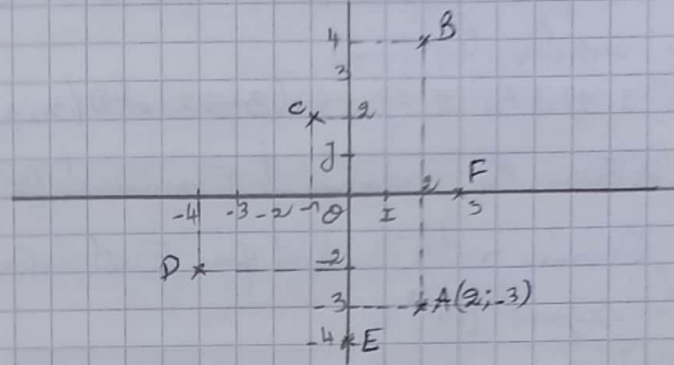 4 B
3
C 2
J
2 F
-4 -3 -2 -1 O I 3
D -2
-3 A(2;-3)
-4 E